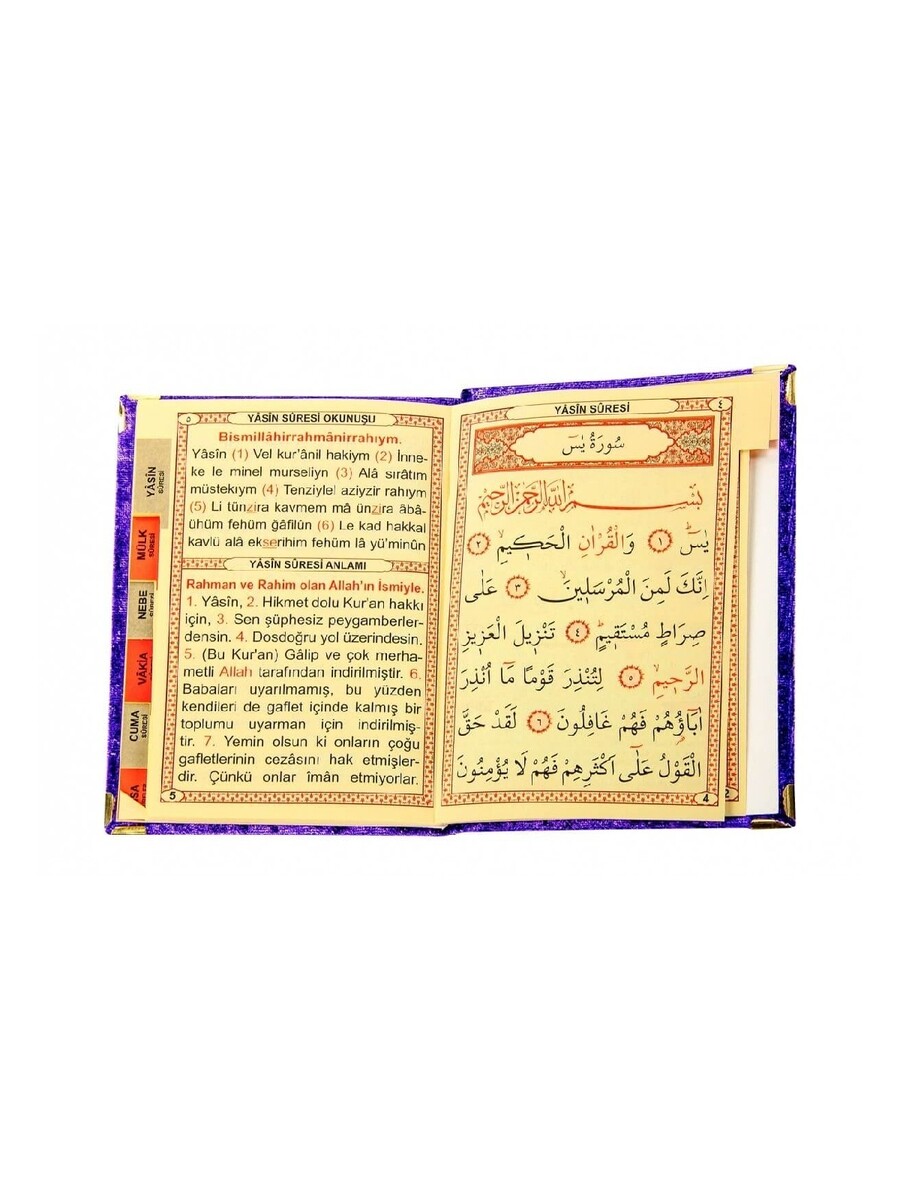 ٥ YÂSÎN SÛRESİ OKUNUŞU
Bismillâhirrahmânirrahıym.
Yâsîn (1) Vel kur'ânil hakiym (2) İnne-
ke le minel murseliyn (3) Alâ sırâtım
müstekıym (4) Tenziylel aziyzir rahıym
(5) Li tünzira kavmem mâ ünzira âbâ-
ühüm fehüm ğâfilûn (6) Le kad hakkal
kavlü alâ ekserihim fehüm lâ yü'minûn
YÂSÎN SÛRESİ ANLAMI
Rahman ve Rahim olan Allah'ın İsmiyle.
1. Yâsîn, 2. Hikmet dolu Kur'an hakkı
için, 3. Sen şüphesiz peygamberler-
densin. 4. Dosdoğru yol üzerindesin.
5. (Bu Kur'an) Gâlip ve çok merha-
metli Allah tarafından indirilmiştir. 6.
Babaları uyarılmamış, bu yüzden
kendileri de gaflet içinde kalmış bir
toplumu uyarman için indirilmiş-
tir. 7. Yemin olsun ki onların çoğu
gafletlerinin cezasını hak etmişler-
dir. Çünkü onlar îmân etmiyorlar.
5
YÂSÎN
SÛRESİ
MÜLK
SÛRESİ
NEBE
VÂKIA
CUMA
SÛRESİ
SA
YÂSÎN SÛRESİ ٤
سُورَةُ يٰسٓ
بِسْمِ اللّٰهِ الرَّحْمٰنِ الرَّحِيمِ
يٰسٓ ۚ ١ وَالْقُرْاٰنِ الْحَك۪يمِۙ ٢
اِنَّكَ لَمِنَ الْمُرْسَل۪ينَۙ ٣ عَلٰى
صِرَاطٍ مُسْتَق۪يمٍۜ ٤ تَنْز۪يلَ الْعَز۪يزِ
الرَّح۪يمِۙ ٥ لِتُنْذِرَ قَوْمًا مَٓا اُنْذِرَ
اٰبَٓاؤُ۬هُمْ فَهُمْ غَافِلُونَ ٦ لَقَدْ حَقَّ
الْقَوْلُ عَلٰٓى اَكْثَرِهِمْ فَهُمْ لَا يُؤْمِنُونَ
4
2